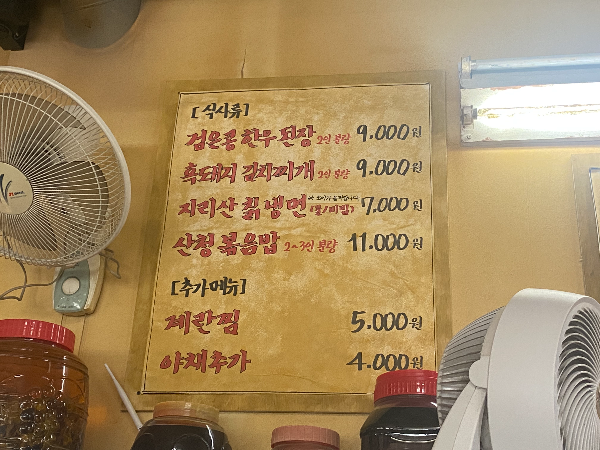 [식사류]
검은콩 한우 된장 2인 분량 9.000원
흑돼지 김치찌개 2인 분량 9.000원
지리산 칡냉면 (물/비빔) 7.000원
산청 볶음밥 2~3인 분량 11.000원
[추가메뉴]
계란찜 5.000원
야채추가 4.000원